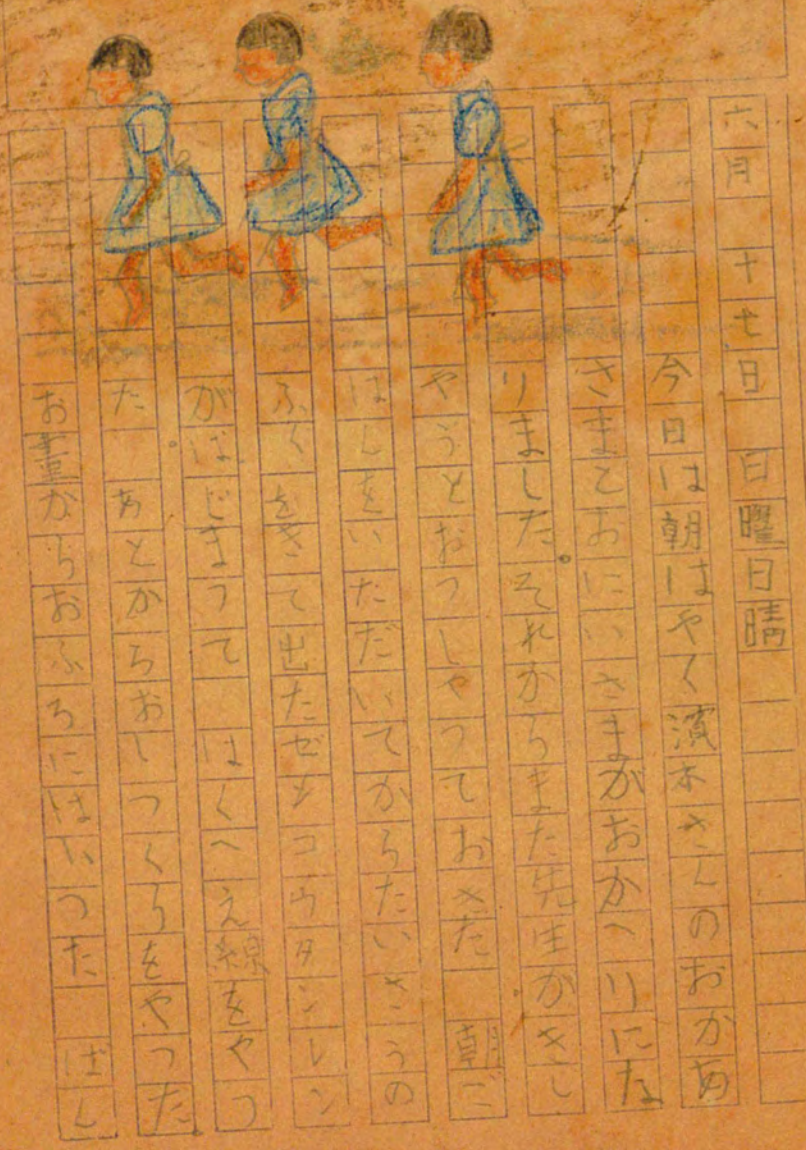 六月 十七日 日曜日晴
今日は朝はやく濱本さんのおかあ
さまとおにいさまがおかへりにな
りました。それからまた先生がきし
やうとおつしやつておきた 朝ご
はんをいただいてからたいさうの
ふくをきて出たゼンコウタンレン
がはじまつて はくへえ線をやつ
た。 あとからおしつくらをやつた。
お晝からおふろにはいつた ばん